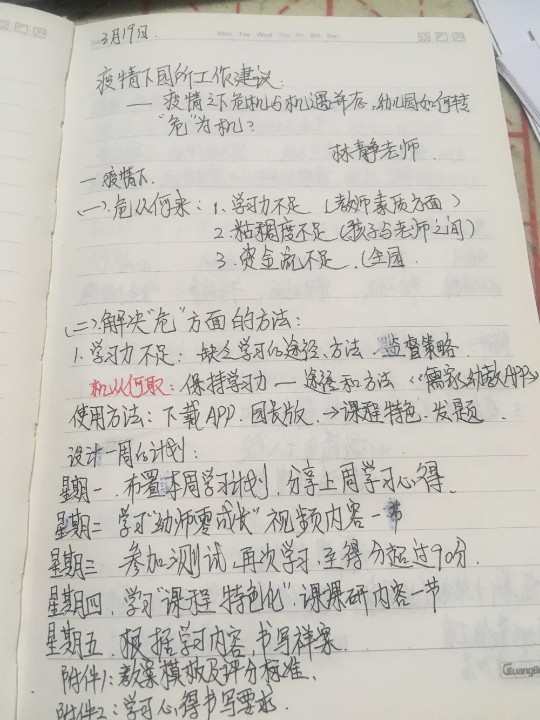 3月19日.
疫情下园所工作建议:
—— 疫情之下危机与机遇并存,幼儿园如何转
"危"为机?
林静老师.
一.疫情下.
(一).危从何来: 1.学习力不足 (教师素质方面)
2.粘稠度不足 (孩子与老师之间)
3.资金流不足.(全园
(二).解决"危"方面的方法:
1.学习力不足: 缺乏学习的途径、方法、监督策略.
机从何取: 保持学习力 — 途径和方法《儒家幼教APP》
使用方法: 下载APP.园长版.→课程特色.发题
设计一周的计划:
星期一.布置本周学习计划,分享上周学习心得.
星期二 学习"幼师零成长"视频内容一节
星期三 参加测试,再次学习,至得分超过90分.
星期四.学习"课程特色化".课课研内容一节
星期五.根据学习内容.书写详案.
附件1:教案模板及评分标准.
附件2:学习心得书写要求.
GuangBo